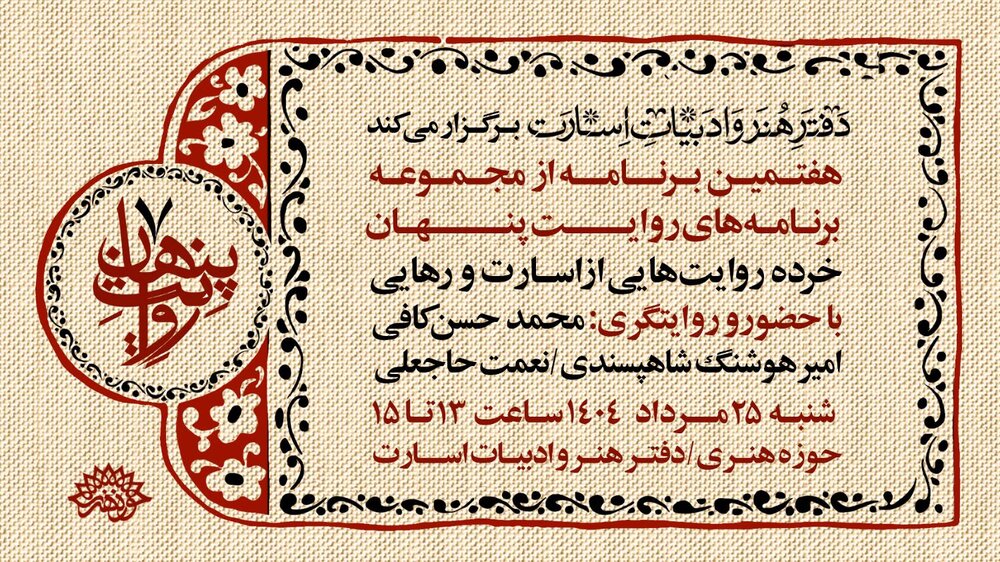 دَفتَرِ هُنَر وَ ادَبیّاتِ اِسارَت برگزار می‌کند
هفتمین برنامه از مجموعه
برنامه‌های روایت پنهان
خرده روایت‌هایی از اسارت و رهایی
با حضور و روایتگری: محمد حسن کافی
امیر هوشنگ شاهپسندی / نعمت حاجعلی
شنبه ۲۵ مرداد ۱۴۰۴ ساعت ۱۳ تا ۱۵
حوزه هنری / دفتر هنر و ادبیات اسارت
روایت پنهان ۷
حوزه هنری